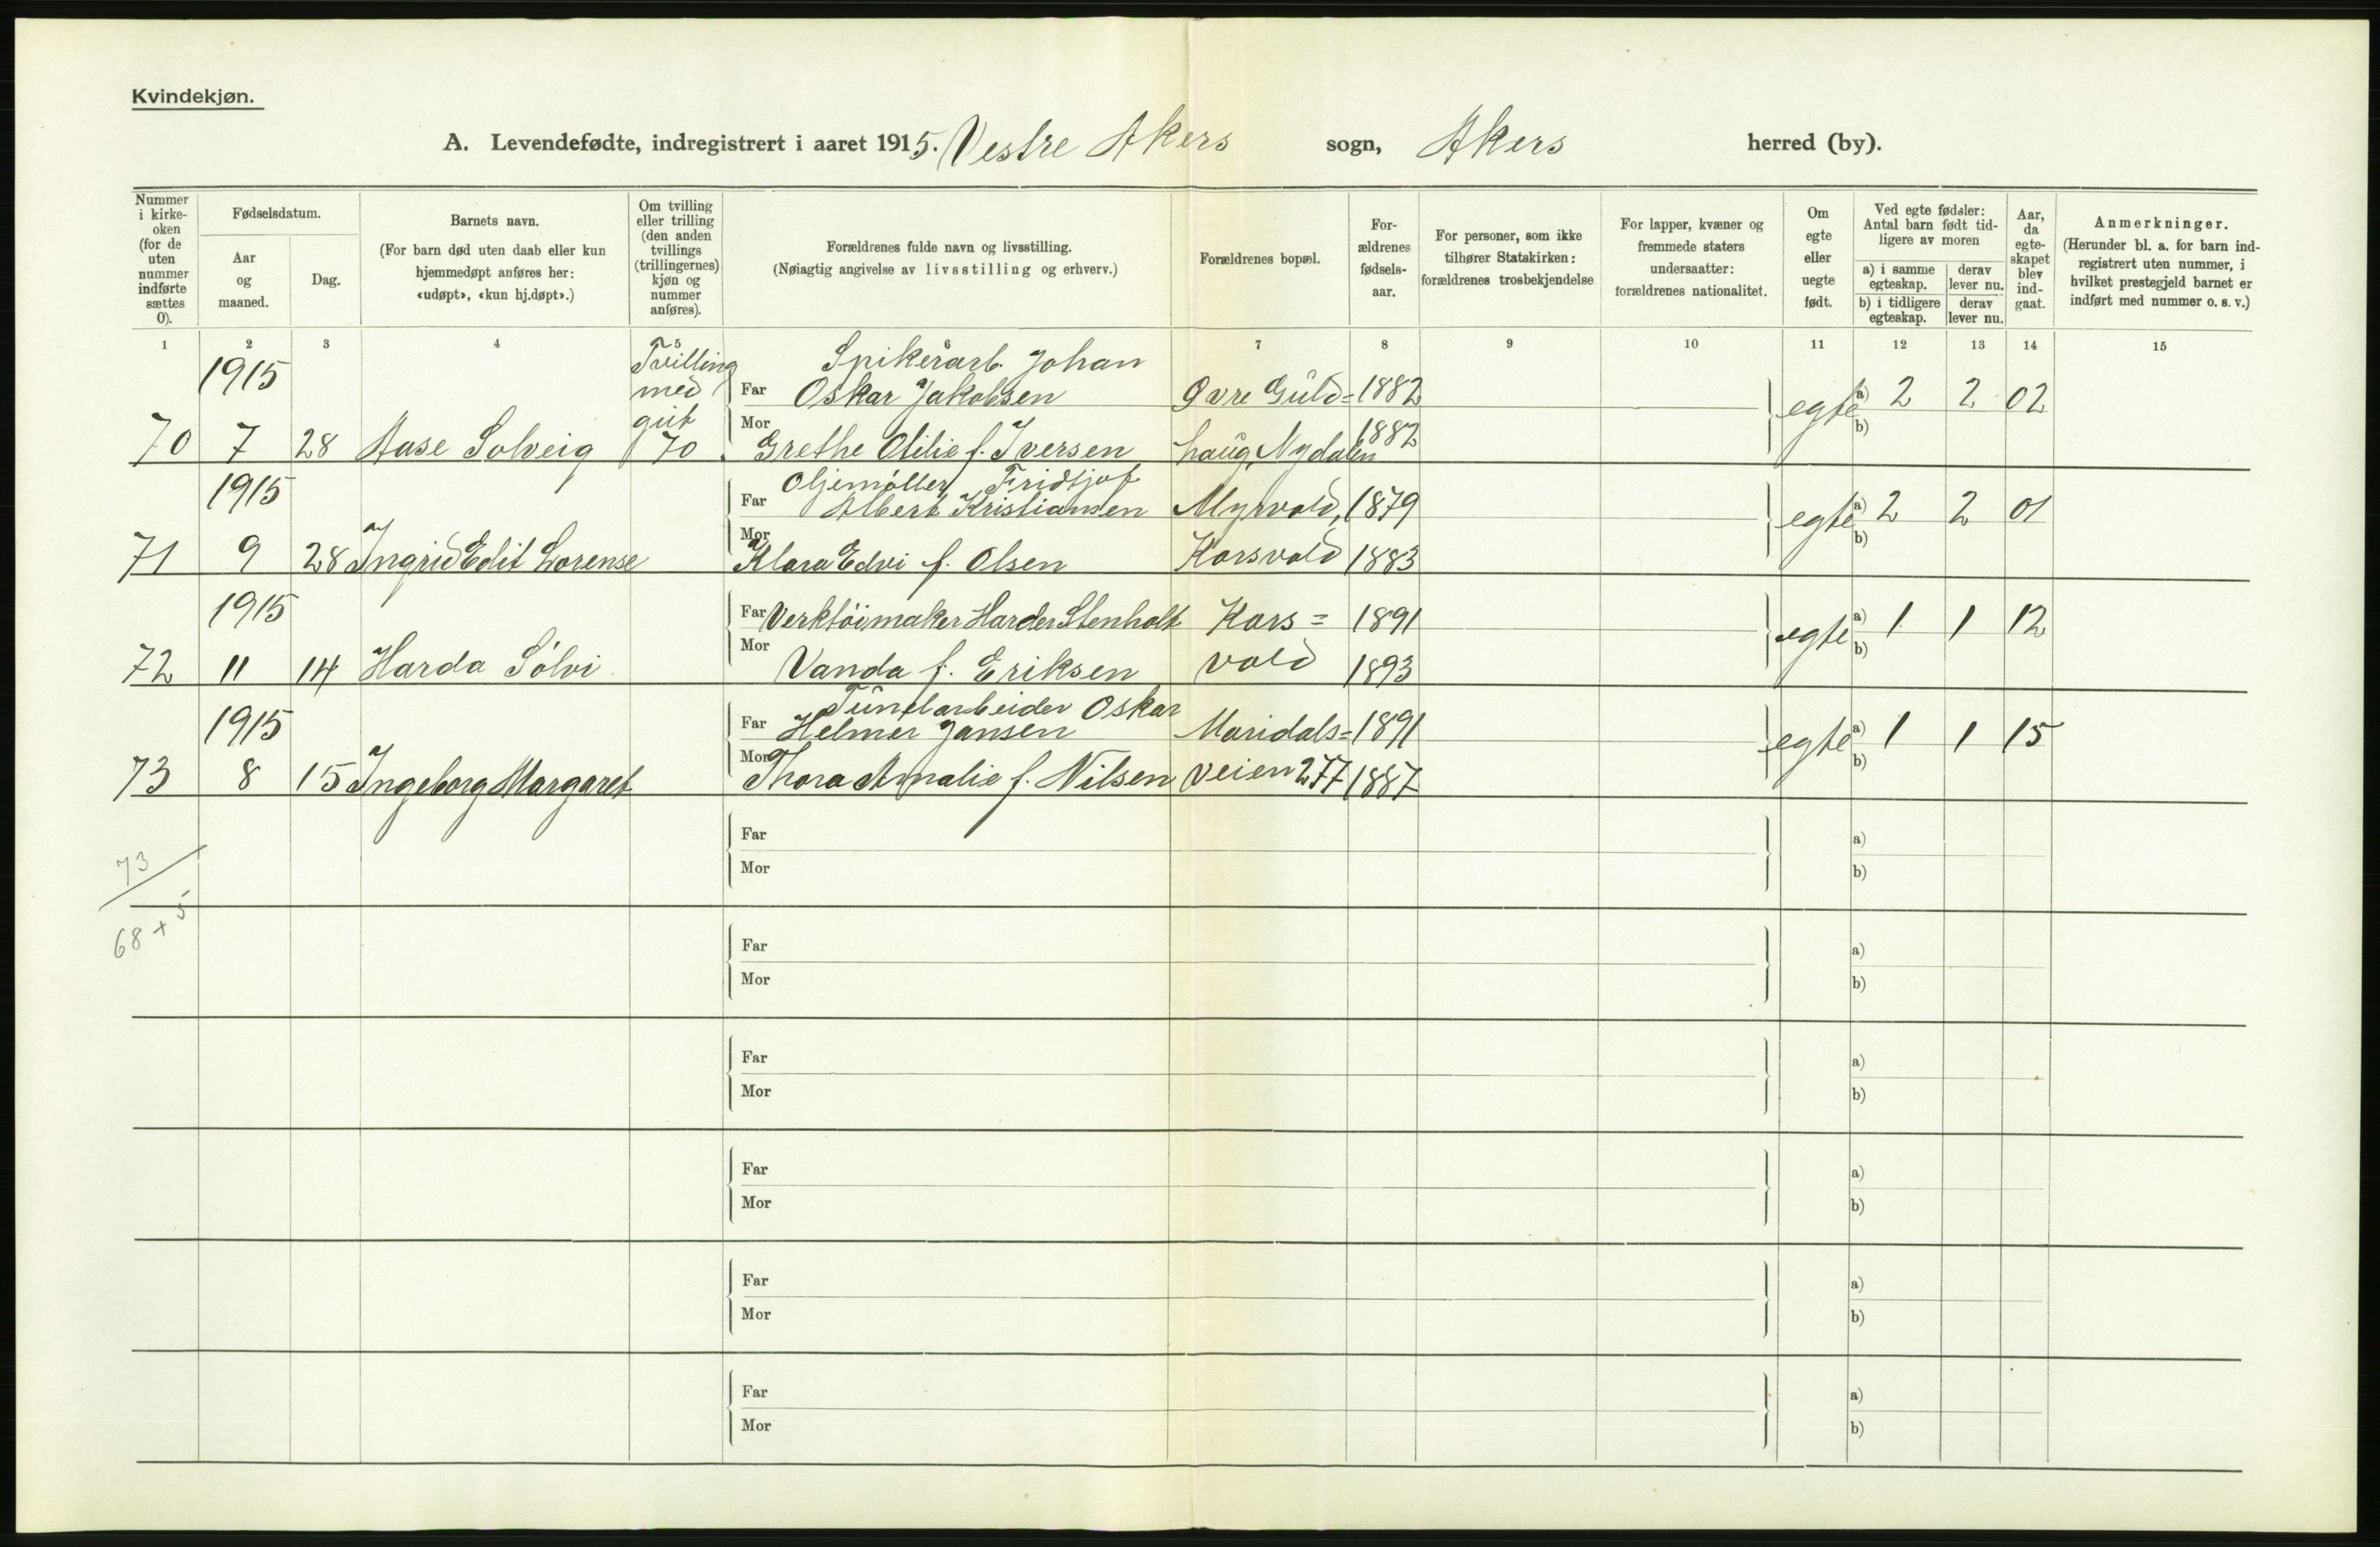 Kvindekjøn.
A. Levendefødte, indregistrert i aaret 1915. Vestre Akers sogn, Akers herred (by).
Nummer i kirke-oken (for de uten nummer indførte sættes 0).
Fødselsdatum.
Aar og maaned.
Dag.
Barnets navn.
(For barn død uten daab eller kun hjemmedøpt anføres her: «udøpt», «kun hj.døpt».)
Om tvilling eller trilling (den anden tvillings (trillingernes) kjøn og nummer anføres).
Forældrenes fulde navn og livsstilling.
(Nøiagtig angivelse av livsstilling og erhverv.)
Forældrenes bopæl.
For-ældrenes fødsels-aar.
For personer, som ikke tilhører Statskirken: forældrenes trosbekjendelse
For lapper, kvæner og fremmede staters undersaatter: forældrenes nationalitet.
Om egte eller uegte født.
Ved egte fødsler: Antal barn født tid-ligere av moren
a) i samme egteskap.
derav lever nu.
b) i tidligere egteskap.
derav lever nu.
Aar, da egte-skapet blev ind-gaat.
Anmerkninger.
(Herunder bl. a. for barn ind-registrert uten nummer, i hvilket prestegjeld barnet er indført med nummer o. s. v.)
1 2 3 4 5 6 7 8 9 10 11 12 13 14 15
1915 Tvilling Spikerarb. Johan
med Far Oskar Jakobsen Øvre Guld= 1882 egte a) 2 2 02
gut Mor 1882 b)
70 7 28 Aase Solveig 70 Grethe Otilie f. Iversen haug, Nydalen
1915 Oljemøller Fridtjof
Far Albert Kristiansen Myrvold, 1879 egte a) 2 2 01
Mor b)
71 9 28 Ingrid Edit Lorense Klara Edvi f. Olsen Korsvold 1883
1915 Far Verktöimaker Harder Stenholt Kors= 1891 egte a) 1 1 12
Mor b)
72 11 14 Harda Sólvi Vanda f. Eriksen vold 1893
Tünelarbeider Oskar
1915 Far Helmer Jansen Maridals= 1891 egte a) 1 1 15
Mor b)
73 8 15 Ingeborg Margaret Thora Amalie f. Nilsen veien 277 1887
Far a)
73
Mor b)
68 + 5
Far a)
Mor b)
Far a)
Mor b)
Far a)
Mor b)
Far a)
Mor b)
Far a)
Mor b)